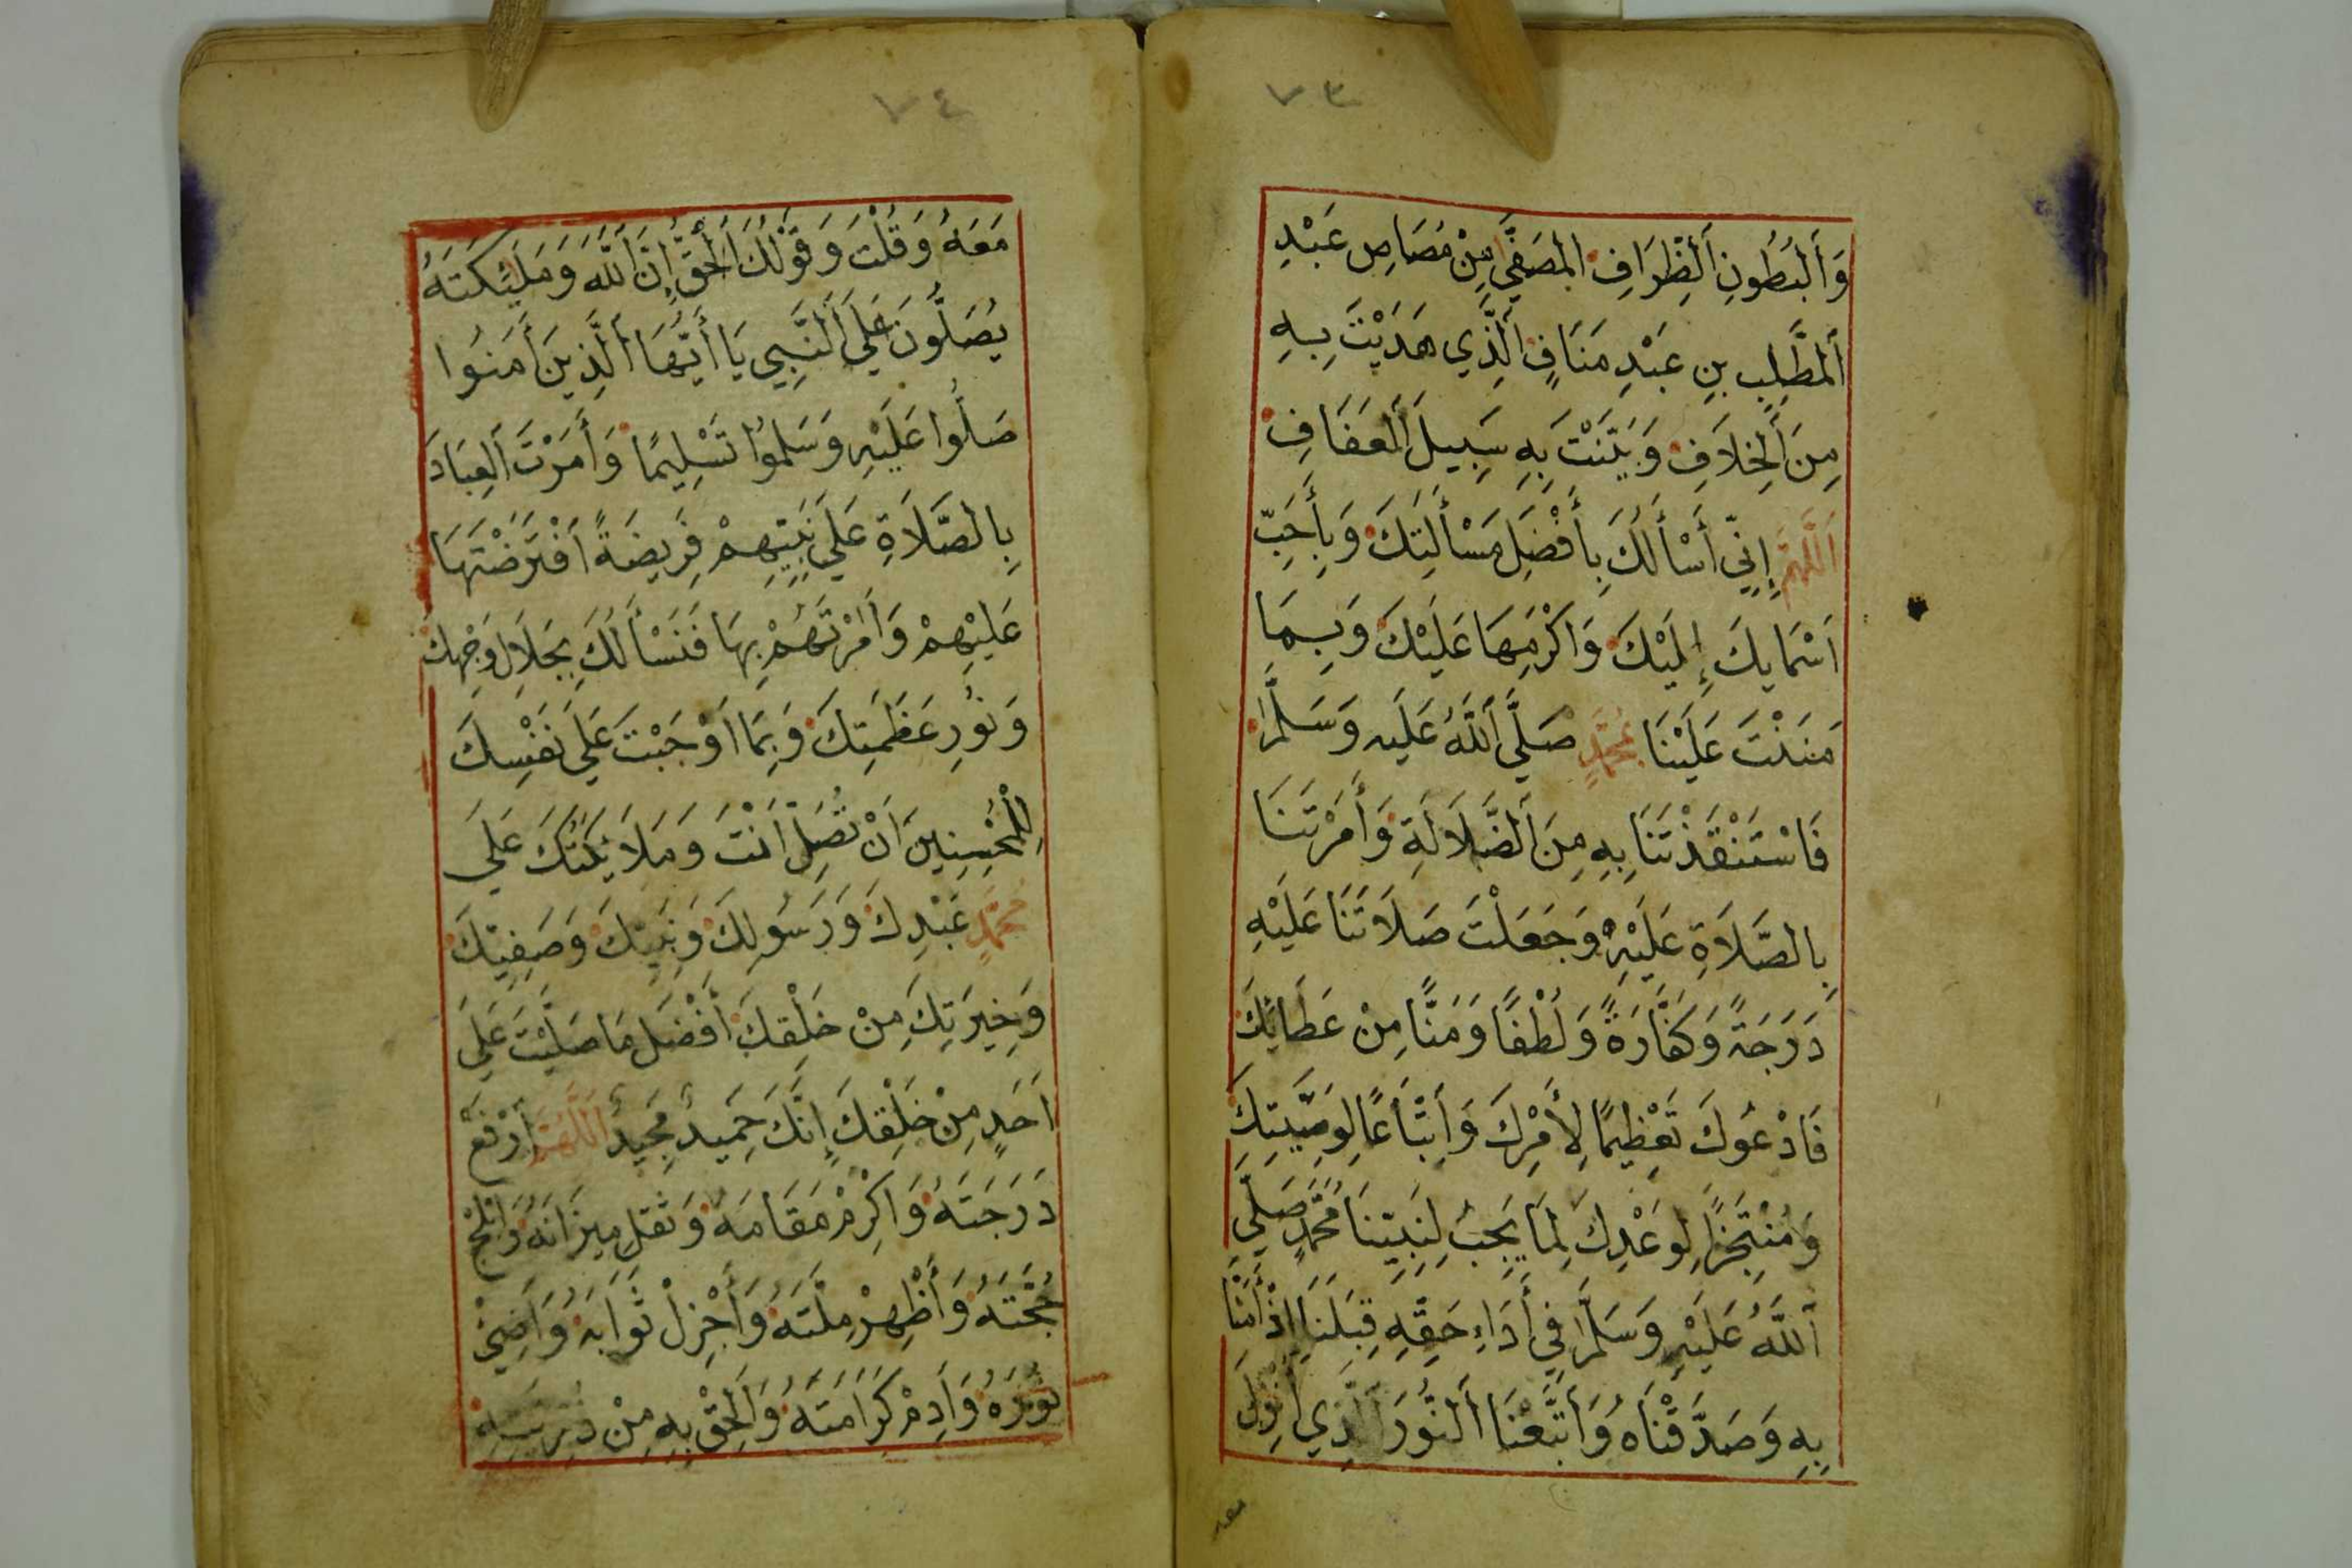 ٧٣
وَاَلْبُطُونِ اَلظِّرَافِ المُصَفَّي مِنْ مُصَاصِ عَبْدِ
اَلمطَّلِبِ بنِ عَبْدِ مَنَافٍ الَّذِي هَدَيْتَ بِهِ
مِنَ اَلخِلاَفِ وَبَيَّنْتَ بِهِ سَبِيلَ اَلعَفَافِ
اَللَّهُمَّ إِنِّي أَسْأَلُكَ بِأَفْضَلِ مَسْأَلَتِكَ وَبِأَحَبِّ
اَسْمَايِكَ إِلَيْكَ وَاَكْرَمِهَا عَلَيْكَ وَبِمَا
مَنَنْتَ عَلَيْنَا بمُحَمَّدٍ صَلَّي اَللَّهُ عَلَيهِ وَسَلَّمَ
فَاسْتَنْقَذْتَنَا بِهِ مِنَ اَلضَّلاَلَةِ وَأَمَرْتَنَا
بِالصَّلاَةِ عَلَيْهِ وَجَعَلْتَ صَلاَتَنَا عَلَيْهِ
دَرَجَةً وَكَفَّارَةً وَلُطْفًا وَمَنًّا مِنْ عَطَائِكَ
فَادْعُوكَ تَعْظِيمًا لِأَمْرِكَ وَاَتْبَاعًا لِوَصِيَّتِكَ
وَمُنْتَجِزًا لِوَعْدِكَ لِمَا يَجِبُ لِنَبِيِّنَا مُحَمَّدٍ صَلَّي
اَللَّهُ عَلَيْهِ وَسَلَّمَ فِي أَدَاءِ حَقِّهِ قِبَلَنَا اِذْ أَمَنَّا
بِهِ وَصَدَّقْنَاهُ وَاَتَّبَعْنَا اَلنُّورَ اَلَّذِي اُنْزِلَ
معه
٧٤
مَعَهُ وَقُلْتَ وَقَوْلُكَ اَلْحَقُّ إِنَّ اَللَّهَ وَمَلَئِكَتَهُ
يُصَلُّونَ عَلَي اَلنَّبِيِ يَا أَيُّهَا اَلَّذِينَ أَمَنُوا
صَلُّوا عَلَيْهِ وَسَلِّمُوا تَسْلِيمًا وَأَمَرْتَ اَلعِبَادَ
بِالصَّلاَةِ عَلَي نَبِيِّهِمْ فَرِيضَةً اَفْتَرَضْتَهَا
عَلَيْهِمْ وَاَمَرْتَهُمْ بِهَا فَنَسْأَلُكَ بِجَلاَلِ وَجْهِكَ
وَنُورِ عَظَمَتِكَ وَبِمَا اَوْجَبْتَ عَلَي نَفْسِكَ
لِلْمُحْسِنِينَ اَنْ تُصَلِّ اَنْتَ وَمَلاَئِكَتُكَ عَلَي
مُحَمَّدٍ عَبْدِكَ وَرَسُولِكَ وَنَبِيِّكَ وَصَفِيِّكَ
وَخِيرَتِكَ مِنْ خَلْقِكَ اَفْضَلَ مَا صَلَّيْتَ عَلَي
اَحَدٍ مِنْ خَلْقِكَ إِنَّكَ حَمِيدٌ مَجِيدٌ اَللَّهُمَّ اَرْفَعْ
دَرَجَتَهُ وَاَكْرِمْ مَقَامَهُ وَثَقِّلْ مِيزَانَهُ وَاَبْلِجْ
حُجَّتَهُ وَأَظْهِرْ مِلَّتَهُ وَأَجْزِلْ ثَوَابَهُ وَاَضِئْ
نُورَهُ وَاَدِمْ كَرَامَتَهُ وَاَلْحِقْ بِهِ مِنْ ذُرِّيَّتِهِ